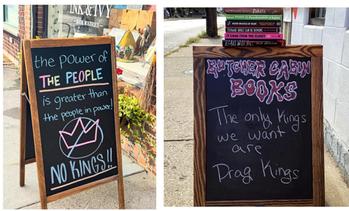 the power of
THE PEOPLE
is greater than
the people in power!
NO KINGS!!
BUTCHER CABIN
BOOKS
The only Kings
we want
are
Drag Kings